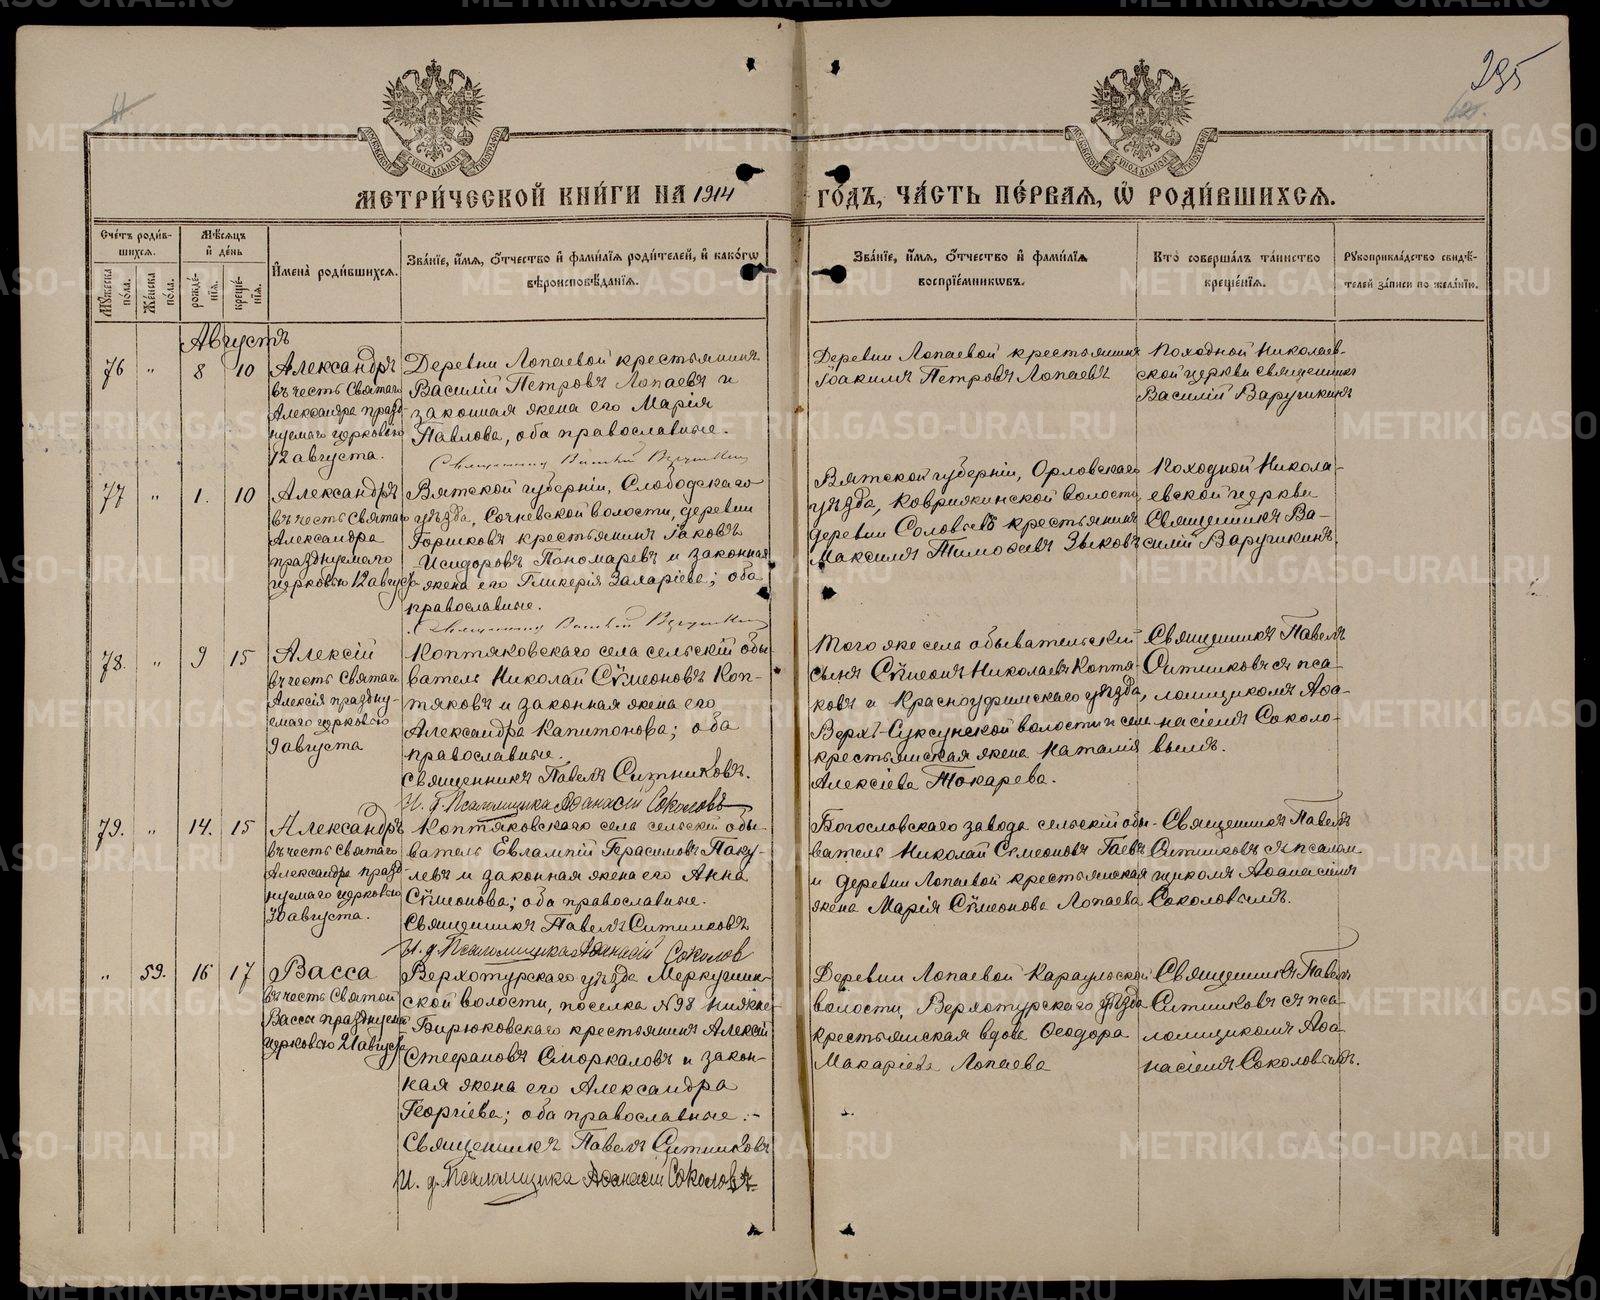 295
МЕТРИ́ЧЕСКОЙ КНИ́ГИ НА 1914 ГО́ДЪ, ЧА́СТЬ ПЕ́РВАЯ, Ѡ҆ РОДИ́ВШИХСЯ.
Сче́тъ роди́в-
шихся.
Му́жеска по́ла.
Же́нска по́ла.
Мѣ́сяцъ
и҆ де́нь
рожде́-
нїя.
креще́-
нїя.
И҆мена̀ роди́вшихся.
Зва́нїе, и҆́мя, о҆́тчество и҆ фами́лїя роди́телей, и҆ како́гѡ
вѣроисповѣ́данїя.
Зва́нїе, и҆́мя, о҆́тчество и҆ фами́лїя
воспрїе́мникѡвъ.
Кто̀ соверша́лъ та́инство
креще́нїя.
Рукоприкла́дство свидѣ́-
телей за́писи по жела́нїю.
Августъ
76 " 8 10
Александръ
въ честь Святаго
Александра празд-
нуемаго церковію
12 августа.
Деревни Лопаевой крестьянинъ
Василій Петровъ Лопаевъ и
законная жена его Марія
Павлова, оба православные.
Священникъ Василій Варушкинъ
Деревни Лопаевой крестьянинъ
Іоакимъ Петровъ Лопаевъ
Походной Николаев-
ской церкви священникъ
Василій Варушкинъ
77 " 1. 10
Александръ
въ честь Святаго
Александра
празднуемаго
церковію 12 августа
Вятской губерніи, Слободскаго
уѣзда, Сочневской волости, деревни
Горшковъ крестьянинъ Іаковъ
Исидоровъ Пономаревъ и законная
жена его Гликерія Захаріева; оба
православные.
Священникъ Василій Варушкинъ
Вятской губерніи, Орловскаго
уѣзда, Коврижкинской волости,
деревни Соловьевъ крестьянинъ
Максимъ Тимоѳеевъ Зыковъ
Походной Никола-
евской церкви
Священникъ Ва-
силій Варушкинъ.
78. " 9 15
Алексій
въ честь Святаго
Алексія праздну-
емаго церковію
9 августа
Коптяковскаго села сельскій обы-
ватель Николай Сѵмеоновъ Коп-
тяковъ и законная жена его
Александра Капитонова; оба
православные.
Священникъ Павелъ Ситниковъ.
И. д. Псаломщика Аѳанасій Соколовъ
Того же села обывательскій
сынъ Сѵмеонъ Николаевъ Коптя-
ковъ и Красноуфимскаго уѣзда,
Верхъ-Суксунской волости и села
крестьянская жена Наталія
Алексіева Токарева.
Священникъ Павелъ
Ситниковъ съ пса-
ломщикомъ Аѳа-
насіемъ Соколо-
вымъ.
79. " 14. 15
Александръ
въ честь Святаго
Александра празд-
нуемаго церковію
30 августа.
Коптяковскаго села сельскій обы-
ватель Евлампій Герасимовъ Паку-
левъ и законная жена его Анна
Сѵмеонова; оба православные.
Священникъ Павелъ Ситниковъ
И. д. Псаломщика Аѳанасій Соколов
Богословскаго завода сельскій обы-
ватель Николай Сѵмеоновъ Гаевъ
и деревни Лопаевой крестьянская
жена Марія Сѵмеонова Лопаева
Священникъ Павелъ
Ситниковъ съ псалом-
щикомъ Аѳанасіемъ
Соколовымъ.
" 59. 16 17
Васса
въ честь Святой
Вассы празднуемой
церковію 21 августа
Верхотурскаго уѣзда Меркушин-
ской волости, поселка №98 Нижне-
Бирюковскаго крестьянинъ Алексій
Стефановъ Сморкаловъ и закон-
ная жена его Александра
Георгіева; оба православные.-
Священникъ Павелъ Ситниковъ
И. д. Псаломщика Аѳанасій Соколовъ
Деревни Лопаевой Караульской
волости, Верхотурскаго уѣзда
крестьянская вдова Ѳеодора
Макаріева Лопаева
Священникъ Павелъ
Ситниковъ съ пса-
ломщикомъ Аѳа-
насіемъ Соколовымъ.
METRIKI.GASO-URAL.RU